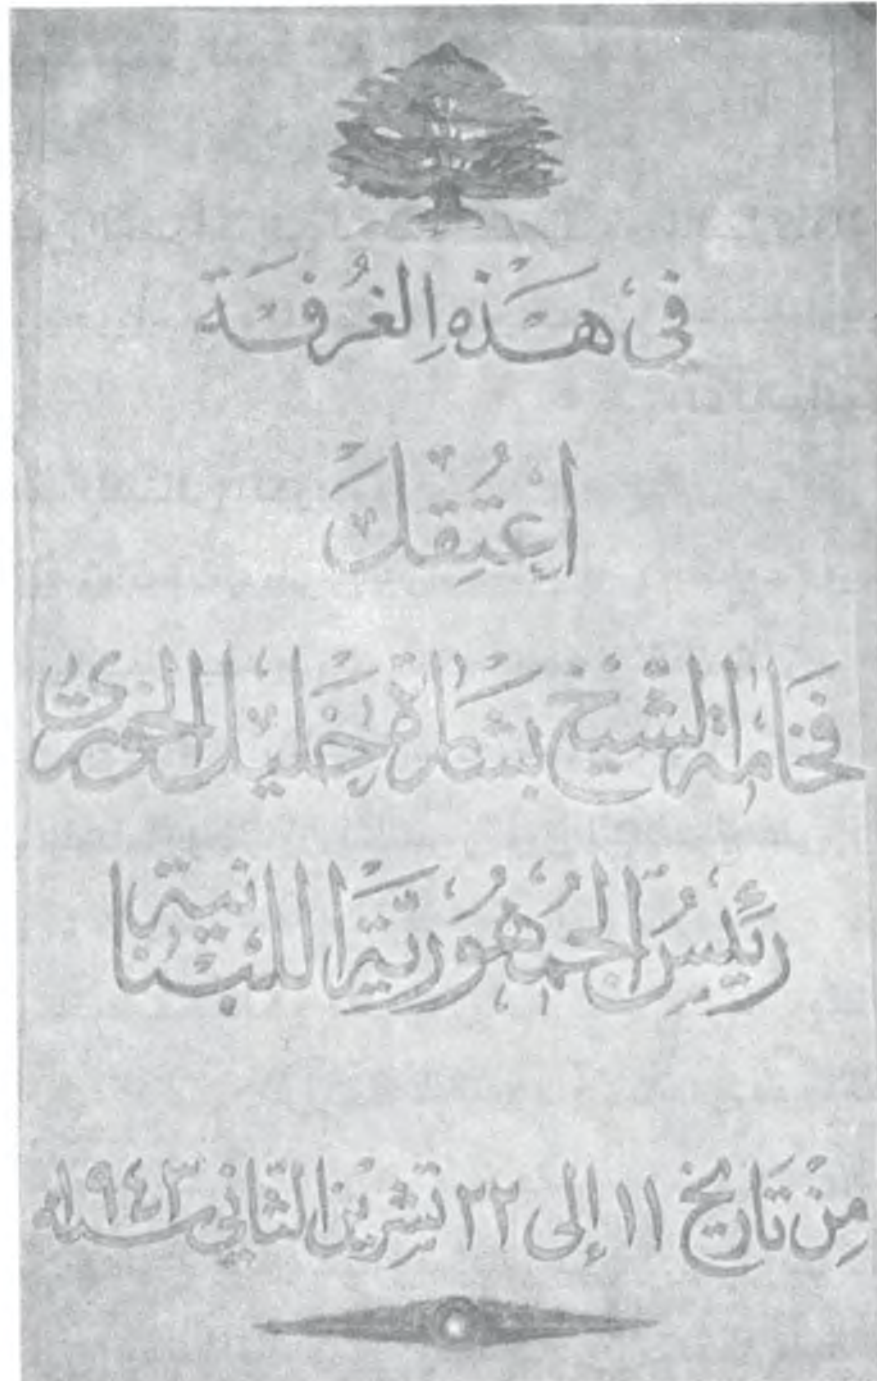 في هَذِهِ الغُرفَة
اعتُقِلَ
فَخَامَة الشَّيخ بشَارَة خَليل الخوري
رَئيسُ الجُمهُوريَّة اللبنَانية
مِنْ تَاريخ ١١ إلى ٢٢ تشرِين الثَّاني سنة ١٩٤٣